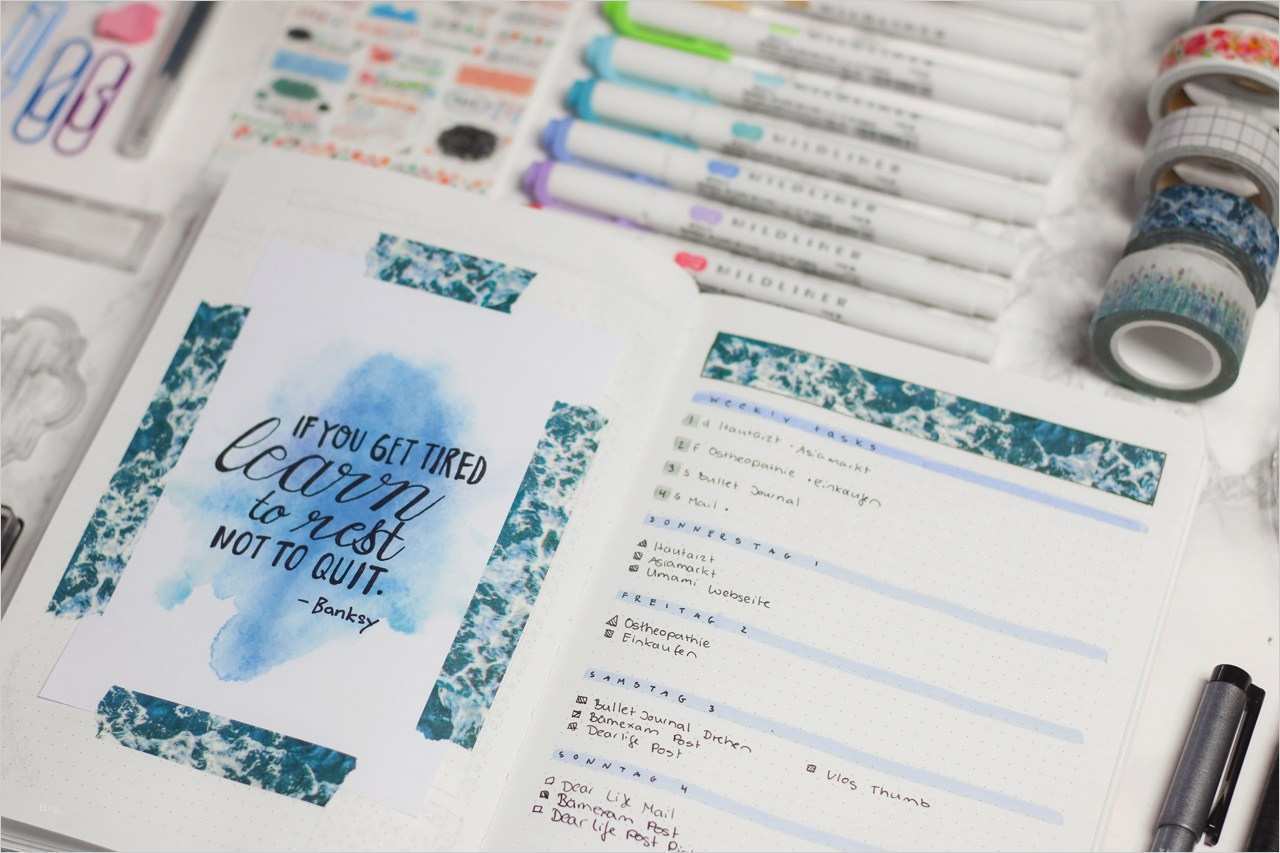 MILDLINER
MILDLINER
MILDLINER
MILDLINER
IF YOU GET TIRED
learn
to rest
NOT TO QUIT.
-Banksy
weekly tasks
1 d Hautarzt • Asiamarkt
2 F Ostheopathie • einkaufen
3 S Bullet Journal
4 S Mail •
DONNERSTAG 1
Hautarzt
Asiamarkt
Umami Webseite
FREITAG 2
Ostheopathie
Einkaufen
SAMSTAG 3
Bullet Journal Drehen
Bamexam Post
Dearlife Post
Vlog Thumb
SONNTAG 4
Dear Life Mail
Bamexam Post
Dear life Post